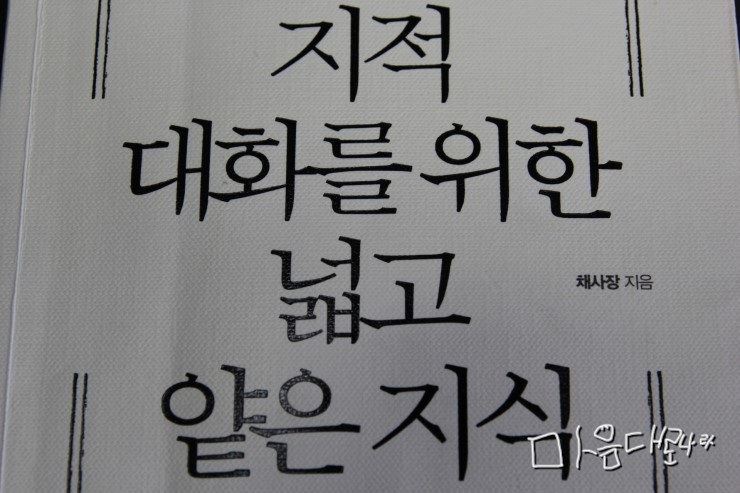 지적
대화를 위한
넓고
채사장 지음
얕은 지식
마음대로나라